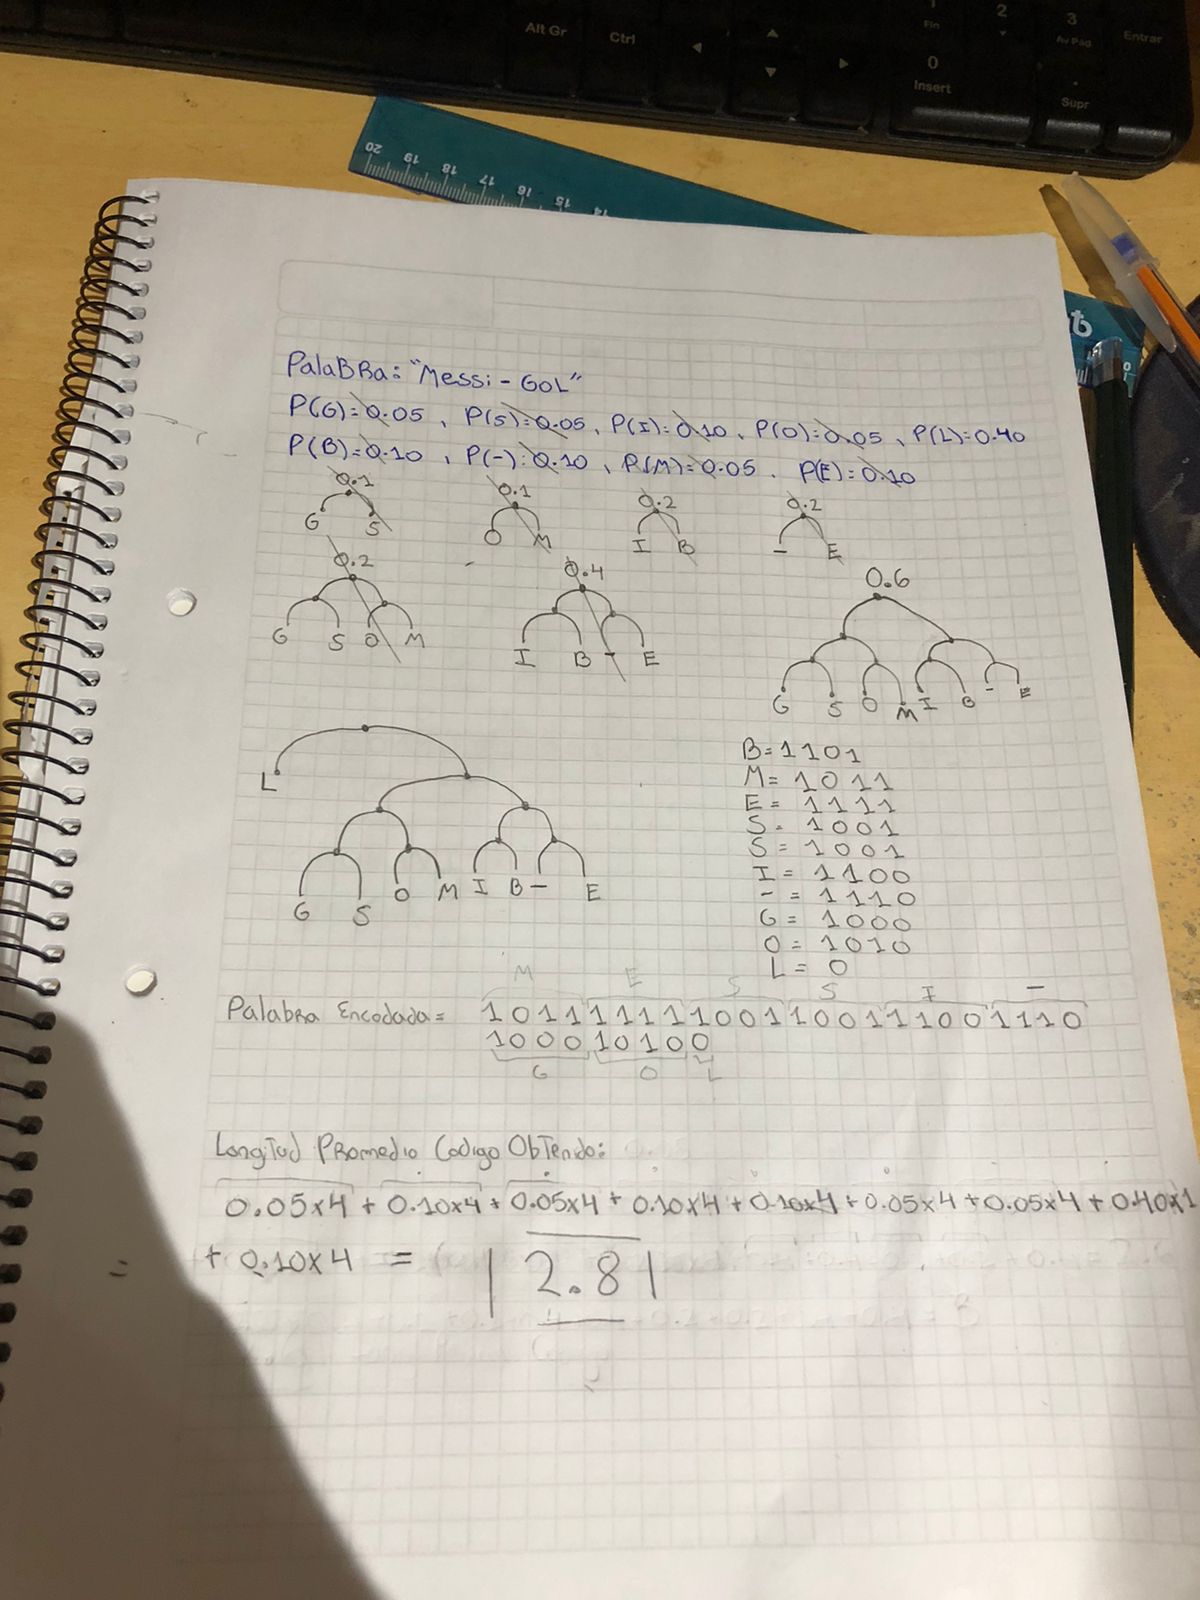 Alt Gr Ctrl
1 Fin 2 3 Av Pág Entrar
0 Insert . Supr
20 19 18 17 16 15 14
PalaBRa: "Messi - GOL"
P(G)=0.05 , P(S)=0.05, P(I)=0.10, P(O)=0.05, P(L)=0.40
P(B)=0.10 , P(-)=0.10 , P(M)=0.05 . P(E)=0.10
0.1 0.1 0.2 0.2
G S O M I B - E
0.2 0.4 0.6
G S O M I B - E
G S O M I B - E
L
G S O M I B - E
B=1101
M=1011
E=1111
S=1001
S=1001
I=1100
-=1110
G=1000
O=1010
L=0
M E S S I -
Palabra Encodada= 101111111001100111001110
100010100
G O L
Longitud PRomedio Codigo ObTenido:
0.05x4 + 0.10x4 + 0.05x4 + 0.10x4 + 0.10x4 + 0.05x4 + 0.05x4 + 0.40x1
+ 0.10x4 = |2.8|